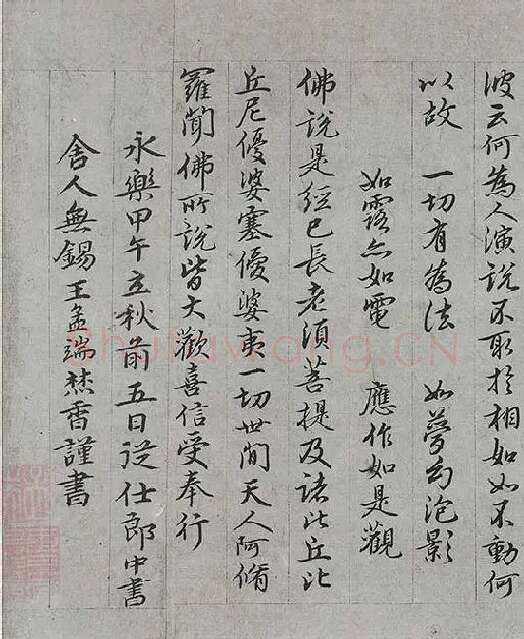 彼云何為人演說不取於相如如不動何
以故　一切有為法　如夢幻泡影
如露亦如電　應作如是觀
佛說是經已長老須菩提及諸比丘比
丘尼優婆塞優婆夷一切世間天人阿脩
羅聞佛所說皆大歡喜信受奉行
永樂甲午立秋前五日從仕郎中書
舍人無錫王孟端焚香謹書